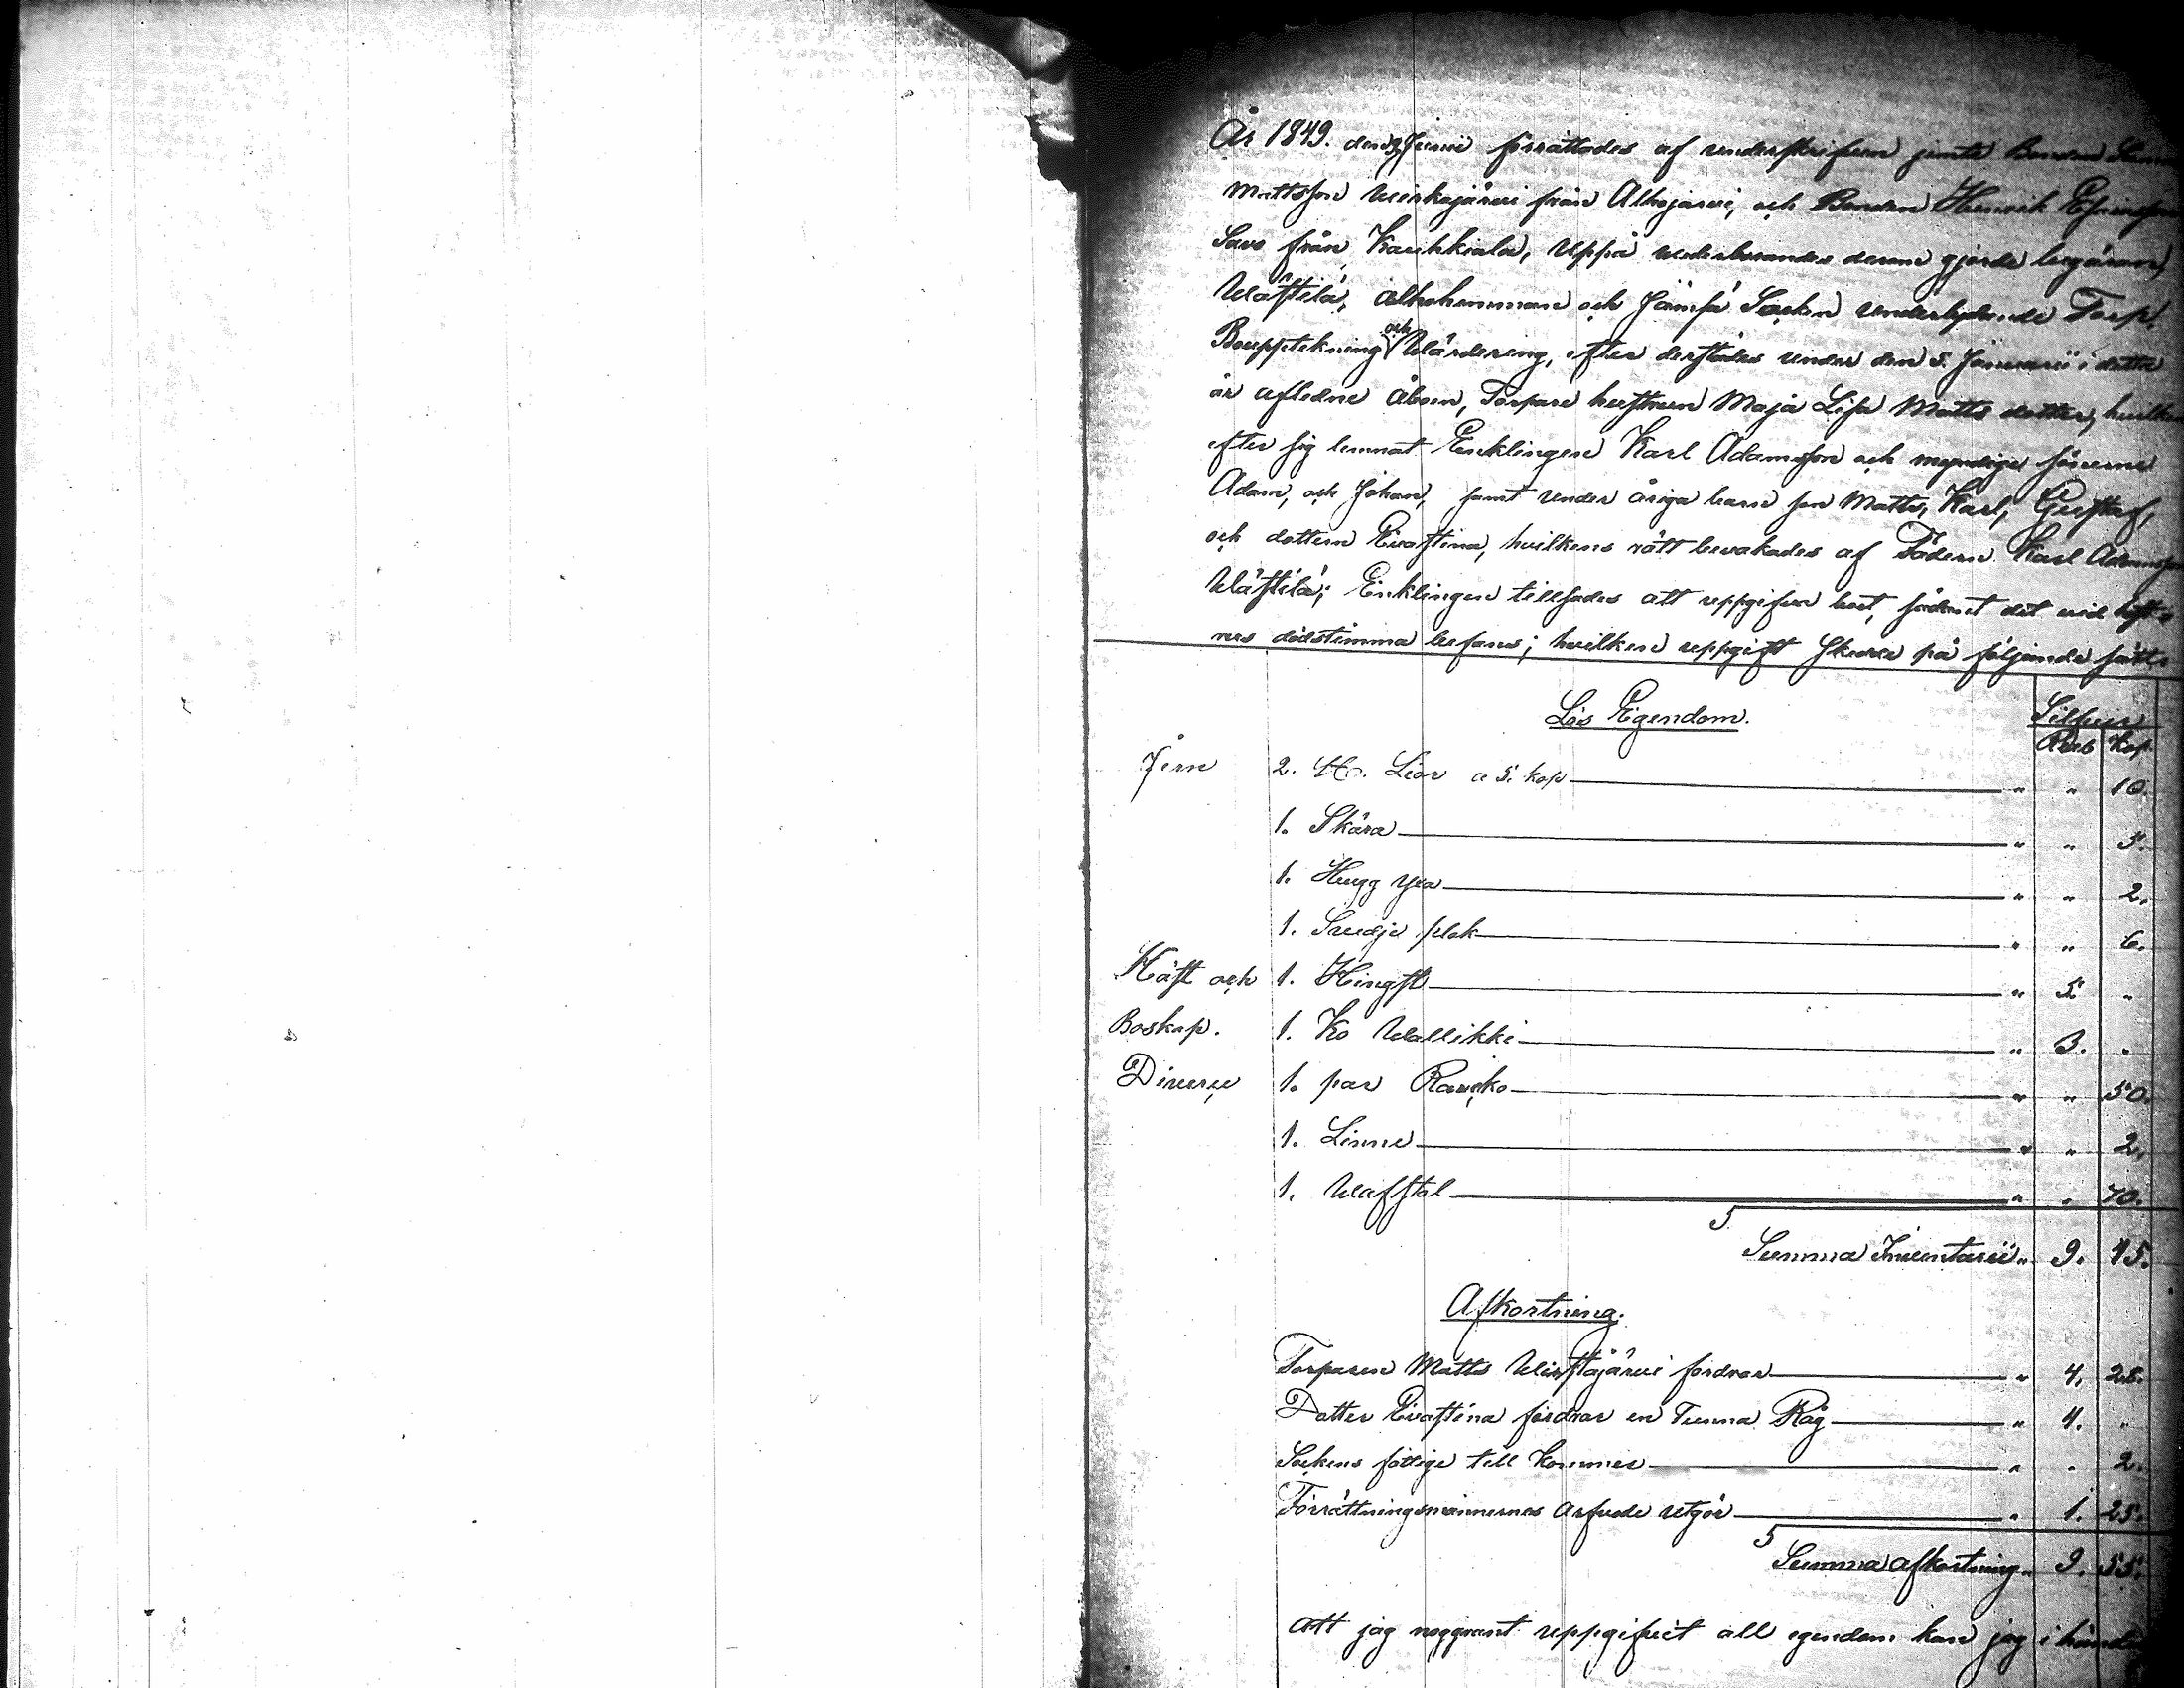 År 1849. den Junii förrättades af underskrifven jemte Bonden
Mattsson från Alhojärvi, och Bonden Henrik
Savo från Kauhkiala, uppå vederborandes derom gjorde begäran,
Wästilä, alhohemman och Jämsä Socken underlydande Torp,
Bouppteckning och Wärdering, efter derstädes under den 5. Januarii i detta
år aflidne åboen, Torpare hustrun Maja Lisa Matts dotter, hvilken
efter sig lemnat Enklingen Karl Adamsson och myndige sönerne
Adam, och Johan, samt under åriga barn son Matts, Karl, Gustaf,
och dottern Evastina, hvilkens rätt bevakades af Fadern Karl Adamsson
Wästilä; Enklingen tillsades att uppgifva boet, sådant det vid
nes dödstimma befans; hvilken uppgift skedde på följande sätt:
Lös Egendom. Silfver
Rub Kop
Jern 2. st. Liar a 5. kop " " 10.
1. Skära " " 5.
1. Hugg yxa " " 2.
1. Smedje " " 6.
Häst och 1. Hingst " 5. "
Boskap. 1. Ko Wallikki " 3. "
Diverse 1. par " " 50.
1. Linne " " 2.
1. Wafstol " " 70.
Summa Inventarii " 9. 45.
Afkortning.
Torparen Matts fordrar " 4. 28.
Dotter Evastina fordrar en Tunna Råg " 4. "
Sockens fattige till kommer " " 2.
Förrättningsmännernes arfvode utgör " 1. 25.
Summa afkortning " 9. 55.
Att jag noggrant uppgifvit all egendom kan jag i